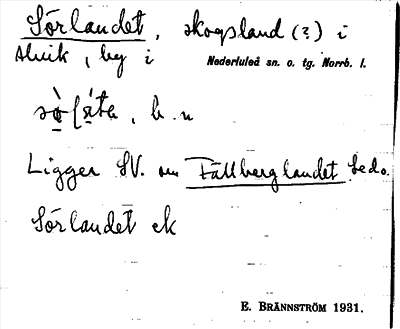 Sörlandet, skogsland (?) i
Alvik, by i Nederluleå sn. o. tg. Norrb. l.
b. n
Ligger SV. om Fällberglandet Se d. o.
Sörlandet ek
E. BRÄNNSTRÖM 1931.